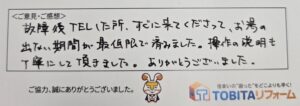 <ご意見・ご感想>
故障後TELした所、すぐに来てくださって、お湯の
出ない期間が最低限で済みました。操作の説明も
丁寧にして頂きました。ありがとうございました。
ご協力、誠にありがとうございました。
住まいの"困った"をどこよりも早く!
TOBITAリフォーム